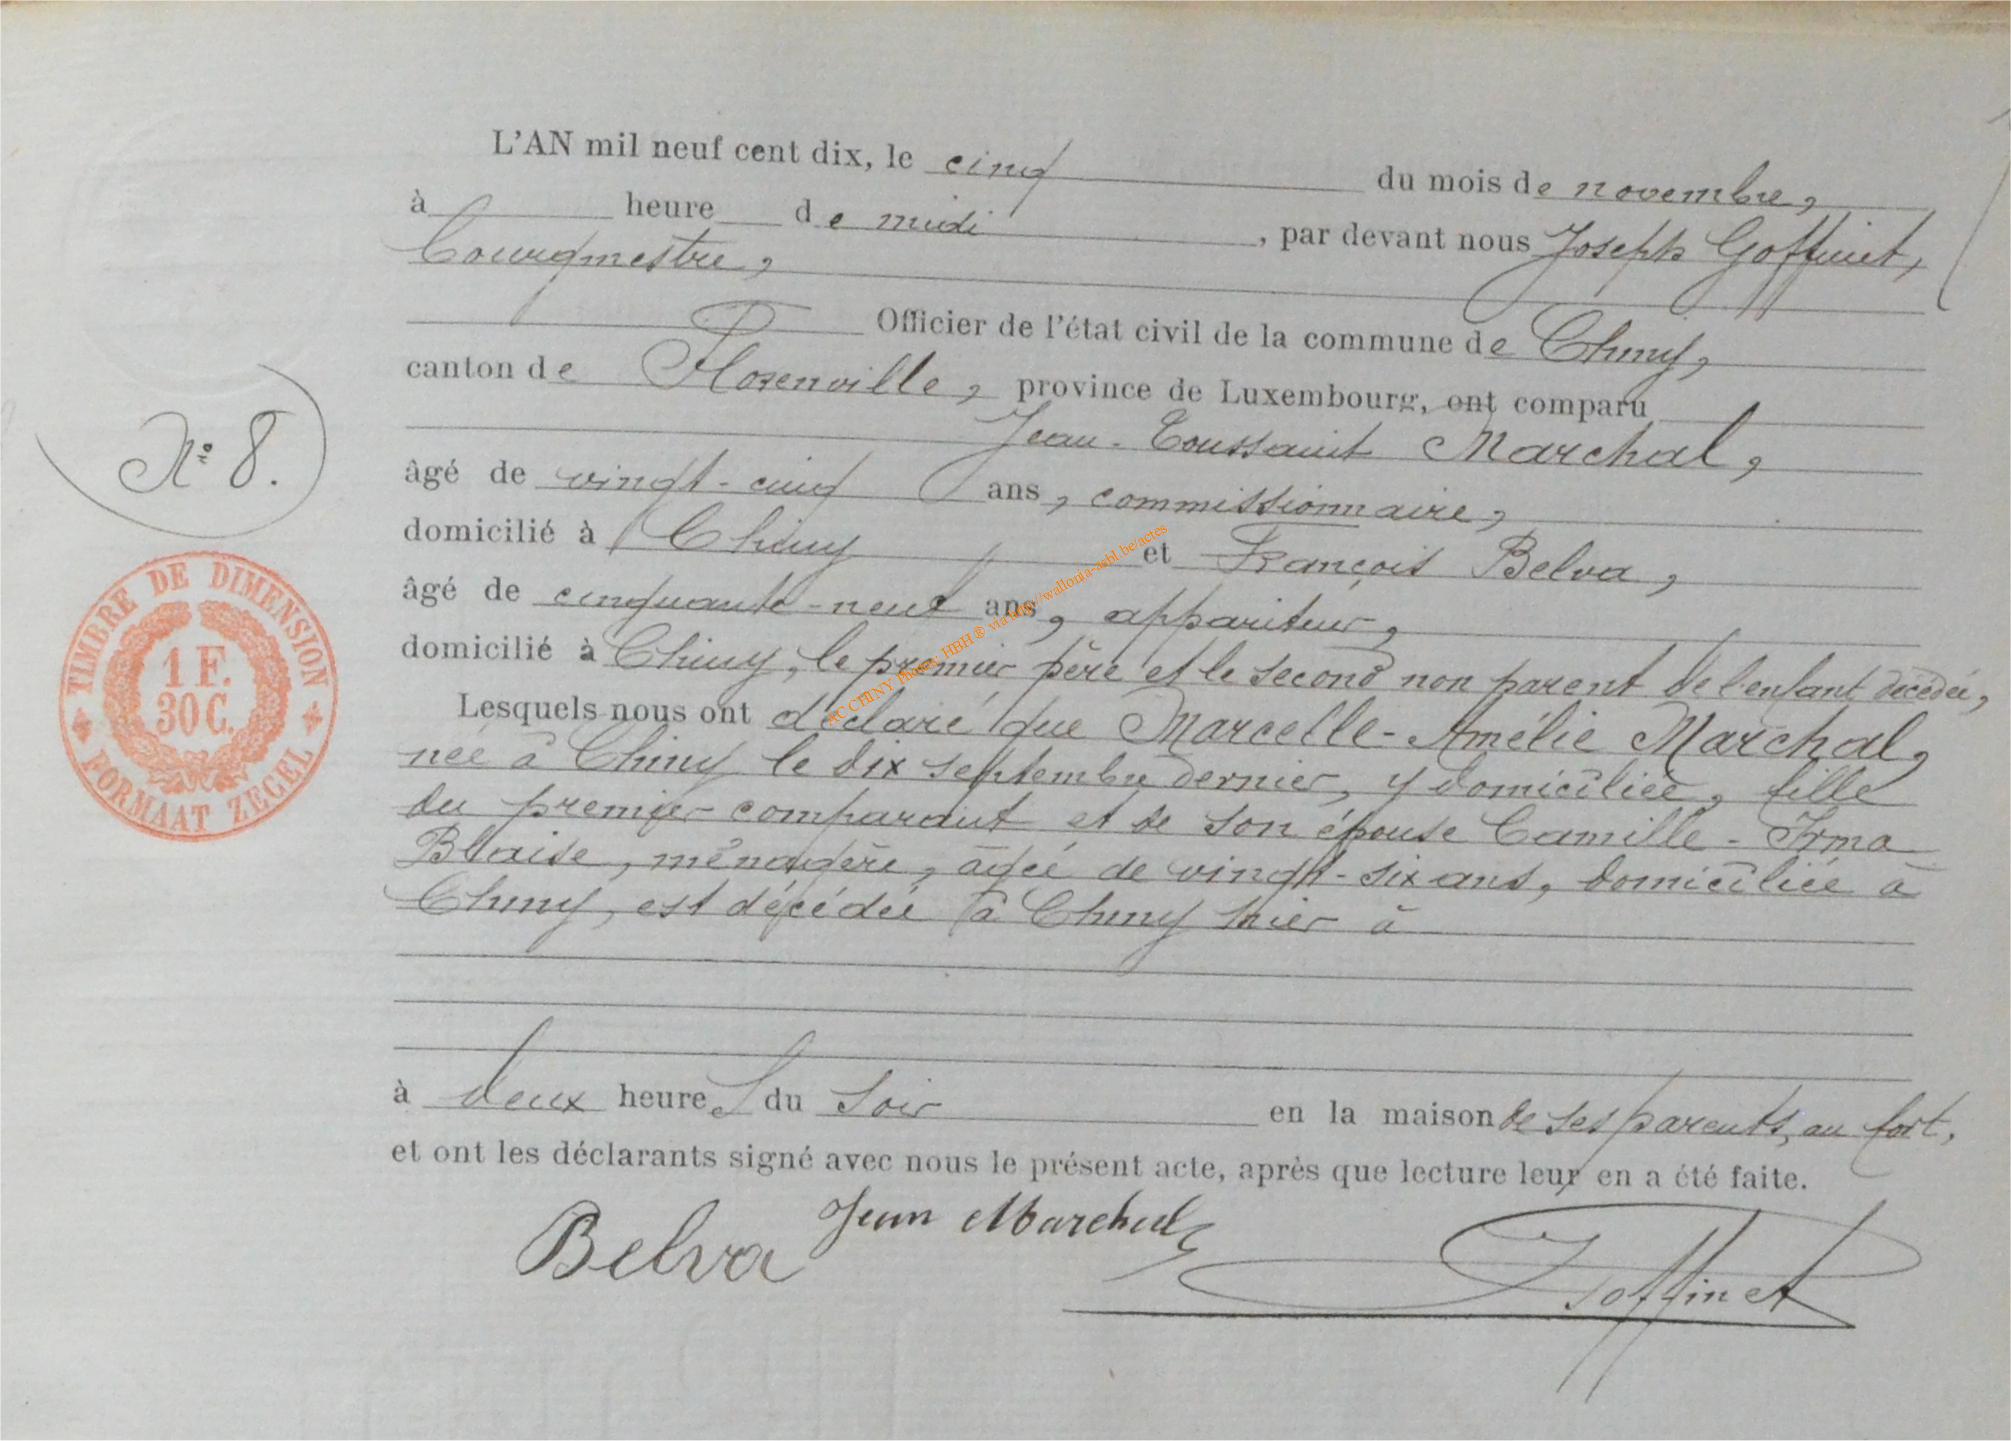 L'AN mil neuf cent dix, le cinq du mois de novembre,
à heure de midi, par devant nous Joseph Goffinet,
bourgmestre,
Officier de l'état civil de la commune de Chiny,
canton de Florenville, province de Luxembourg, ont comparu
Jean-Toussaint Marchal,
âgé de vingt-cinq ans, commissionnaire,
domicilié à Chiny et François Belva,
âgé de cinquante-neuf ans, appariteur,
domicilié à Chiny, le premier père et le second non parent de l'enfant décédée,
Lesquels nous ont déclaré que Marcelle-Amélie Marchal,
née à Chiny le dix septembre dernier, y domiciliée, fille
du premier comparant et de son épouse Camille-Irma
Blaise, ménagère, âgée de vingt-six ans, domiciliée à
Chiny, est décédée à Chiny hier à
à deux heures du soir en la maison de ses parents, au fort,
et ont les déclarants signé avec nous le présent acte, après que lecture leur en a été faite.
Belva Jean Marchal
Goffinet
N° 8.
TIMBRE DE DIMENSION
1 F.
30 C.
FORMAAT ZEGEL
AC CHINY Photos: HBH ® via http://wallonia-asbl.be/actes